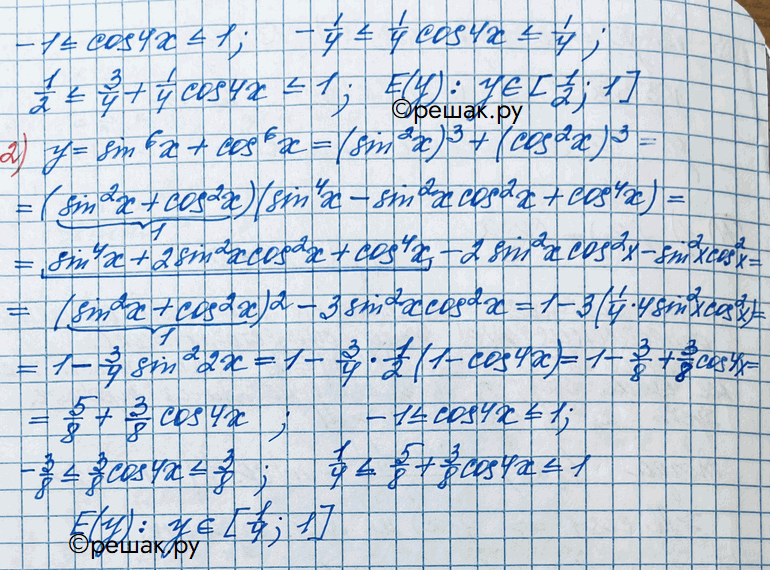 -1 ≤ cos4x ≤ 1; -1/4 ≤ 1/4 cos4x ≤ 1/4;
1/2 ≤ 3/4 + 1/4 cos4x ≤ 1; E(y): y ∈ [1/2; 1]
©решак.ру
2) y = sin⁶x + cos⁶x = (sin²x)³ + (cos²x)³ =
= (sin²x + cos²x)(sin⁴x - sin²x cos²x + cos⁴x) =
1
= sin⁴x + 2sin²x cos²x + cos⁴x - 2sin²x cos²x - sin²x cos²x =
= (sin²x + cos²x)² - 3sin²x cos²x = 1 - 3(1/4 · 4sin²x cos²x) =
1
= 1 - 3/4 sin²2x = 1 - 3/4 · 1/2 (1 - cos4x) = 1 - 3/8 + 3/8 cos4x =
= 5/8 + 3/8 cos4x ; -1 ≤ cos4x ≤ 1;
-3/8 ≤ 3/8 cos4x ≤ 3/8 ; 1/4 ≤ 5/8 + 3/8 cos4x ≤ 1
E(y): y ∈ [1/4; 1]
©решак.ру